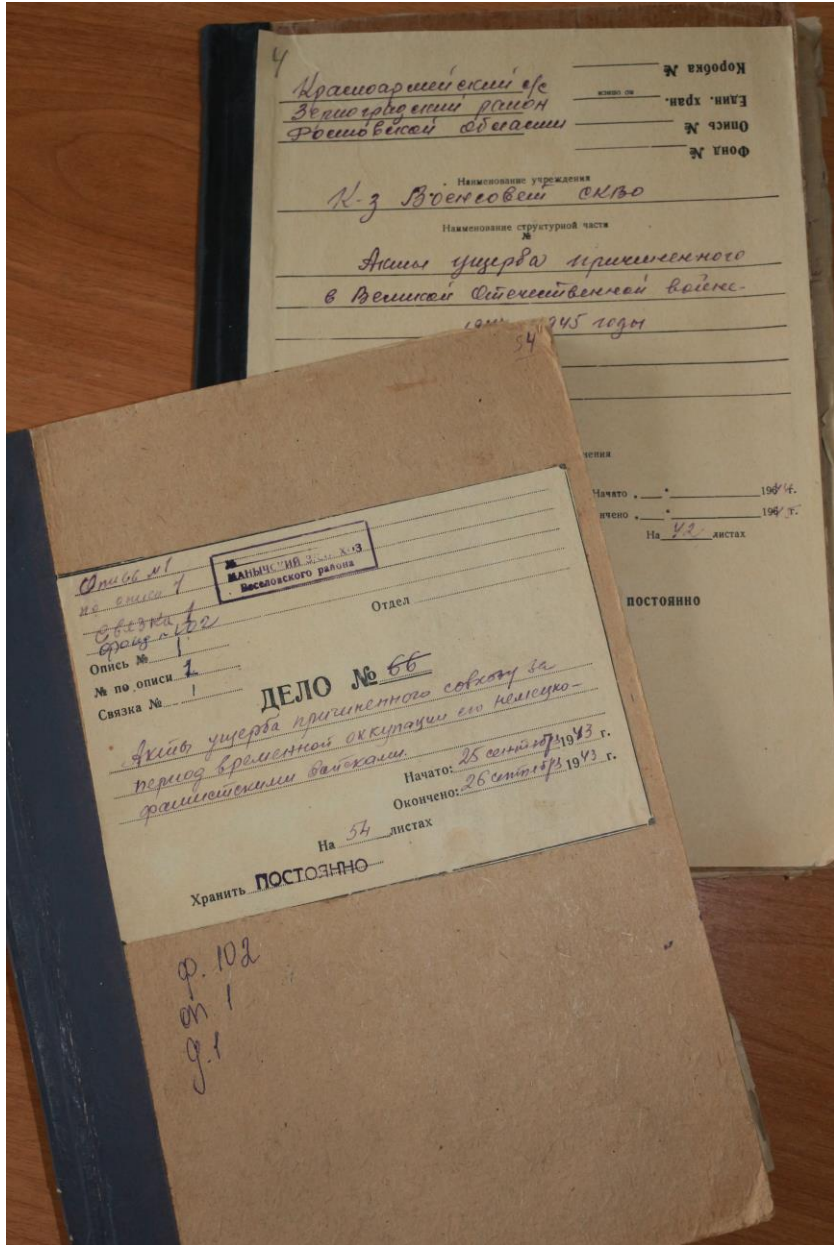 4
Красноармейский с/с
Зерноградский район
Ростовской области
Коробка №
Един. хран.
по описи
Опись №
Фонд №
Наименование учреждения
К-з Военсовет СКВО
Наименование структурной части
№
Акты ущерба причиненного
в Великой Отечественной войне
1945 годы
Начато „ “ 194 г.
„ “ 194 г.
На 42 листах
ПОСТОЯННО
54
Опись №1
по описи 1
Связка 1
фонд - 102
№
МАНЫЧСКИЙ
Веселовского района
Отдел
Опись № 1
№ по описи 1
Связка № 1
ДЕЛО № 66
Акты ущерба причиненного совхозу за
период временной оккупации его немецко-
фашистскими войсками.
Начато: 25 сентября 1943 г.
Окончено: 26 сентября 1943 г.
На 54 листах
Хранить ПОСТОЯННО
ф. 102
оп 1
д. 1